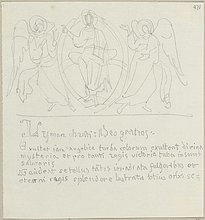 Lumen christi: Deo gratias.
Exultet iam angelica turba celorum exultent divina
mysteria et pro tanti regis victoria tuba intonet
salutaris.
Gaudeat se tellus tātis irradiata fulgoribus et
eterni regis splendore lustrata totius orbis se